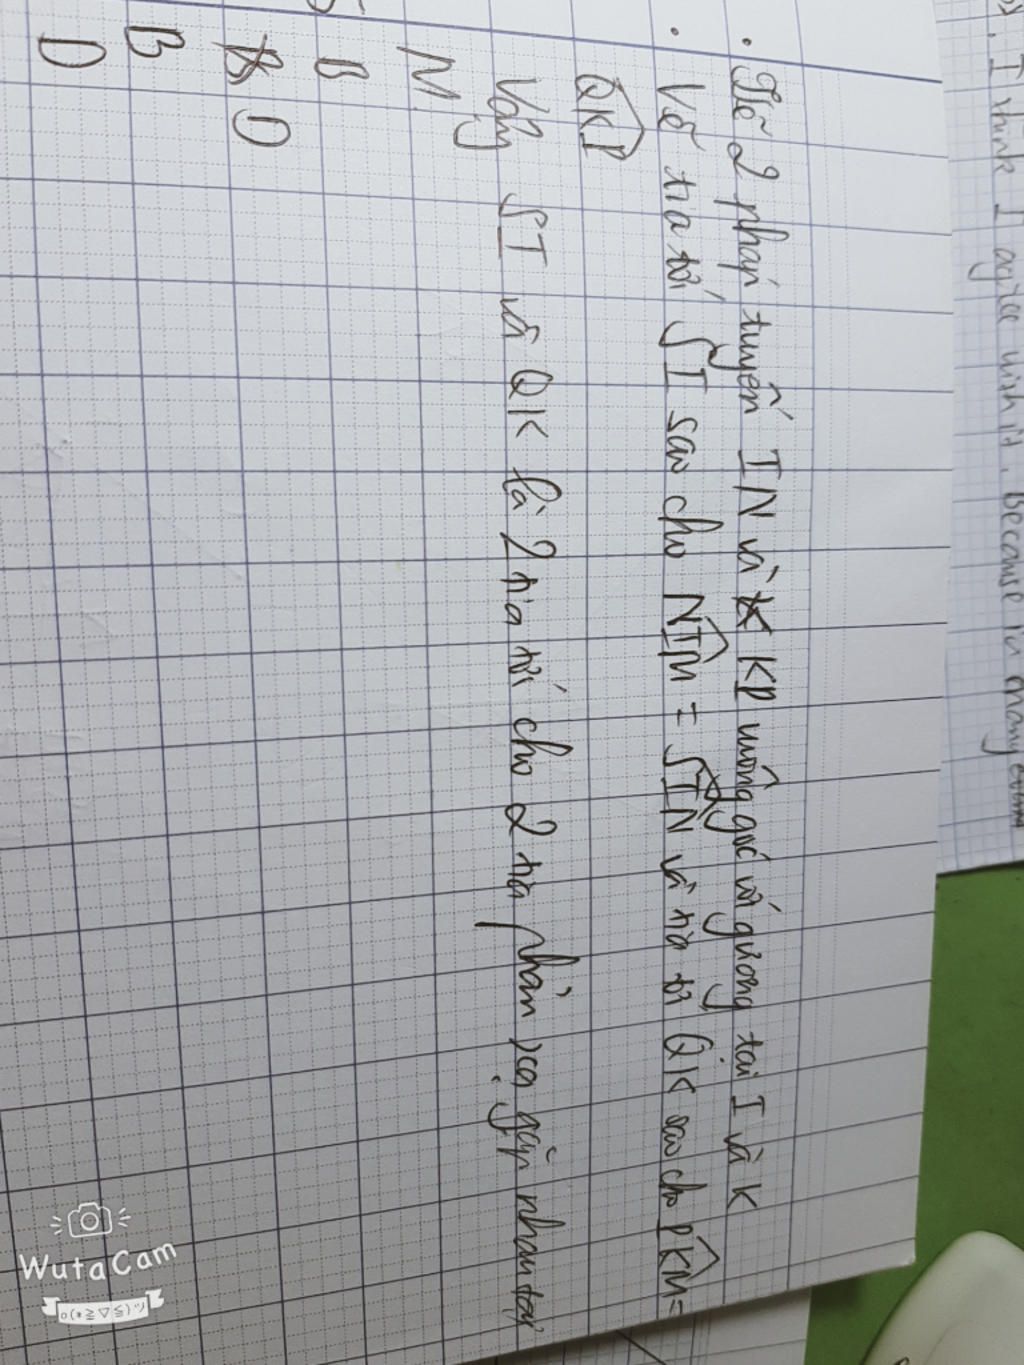 . I think I agree with it. Because in many
. Kẻ 2 pháp tuyến IN và KP vuông góc với gương tại I và K
. Vẽ tia tới SI sao cho NIM = SIN và tia tới QK sao cho PKM =
QKP
Vậy SI và QK là 2 tia tới cho 2 tia phản xạ gặp nhau tại
M
B
D
B
D
WutaCam
o(*≧▽≦)ツ